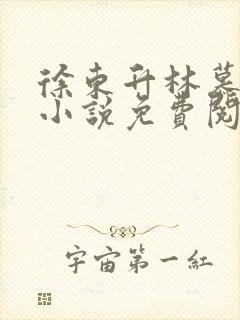 徐東升林墓
小說免費閱
宇宙第一紅